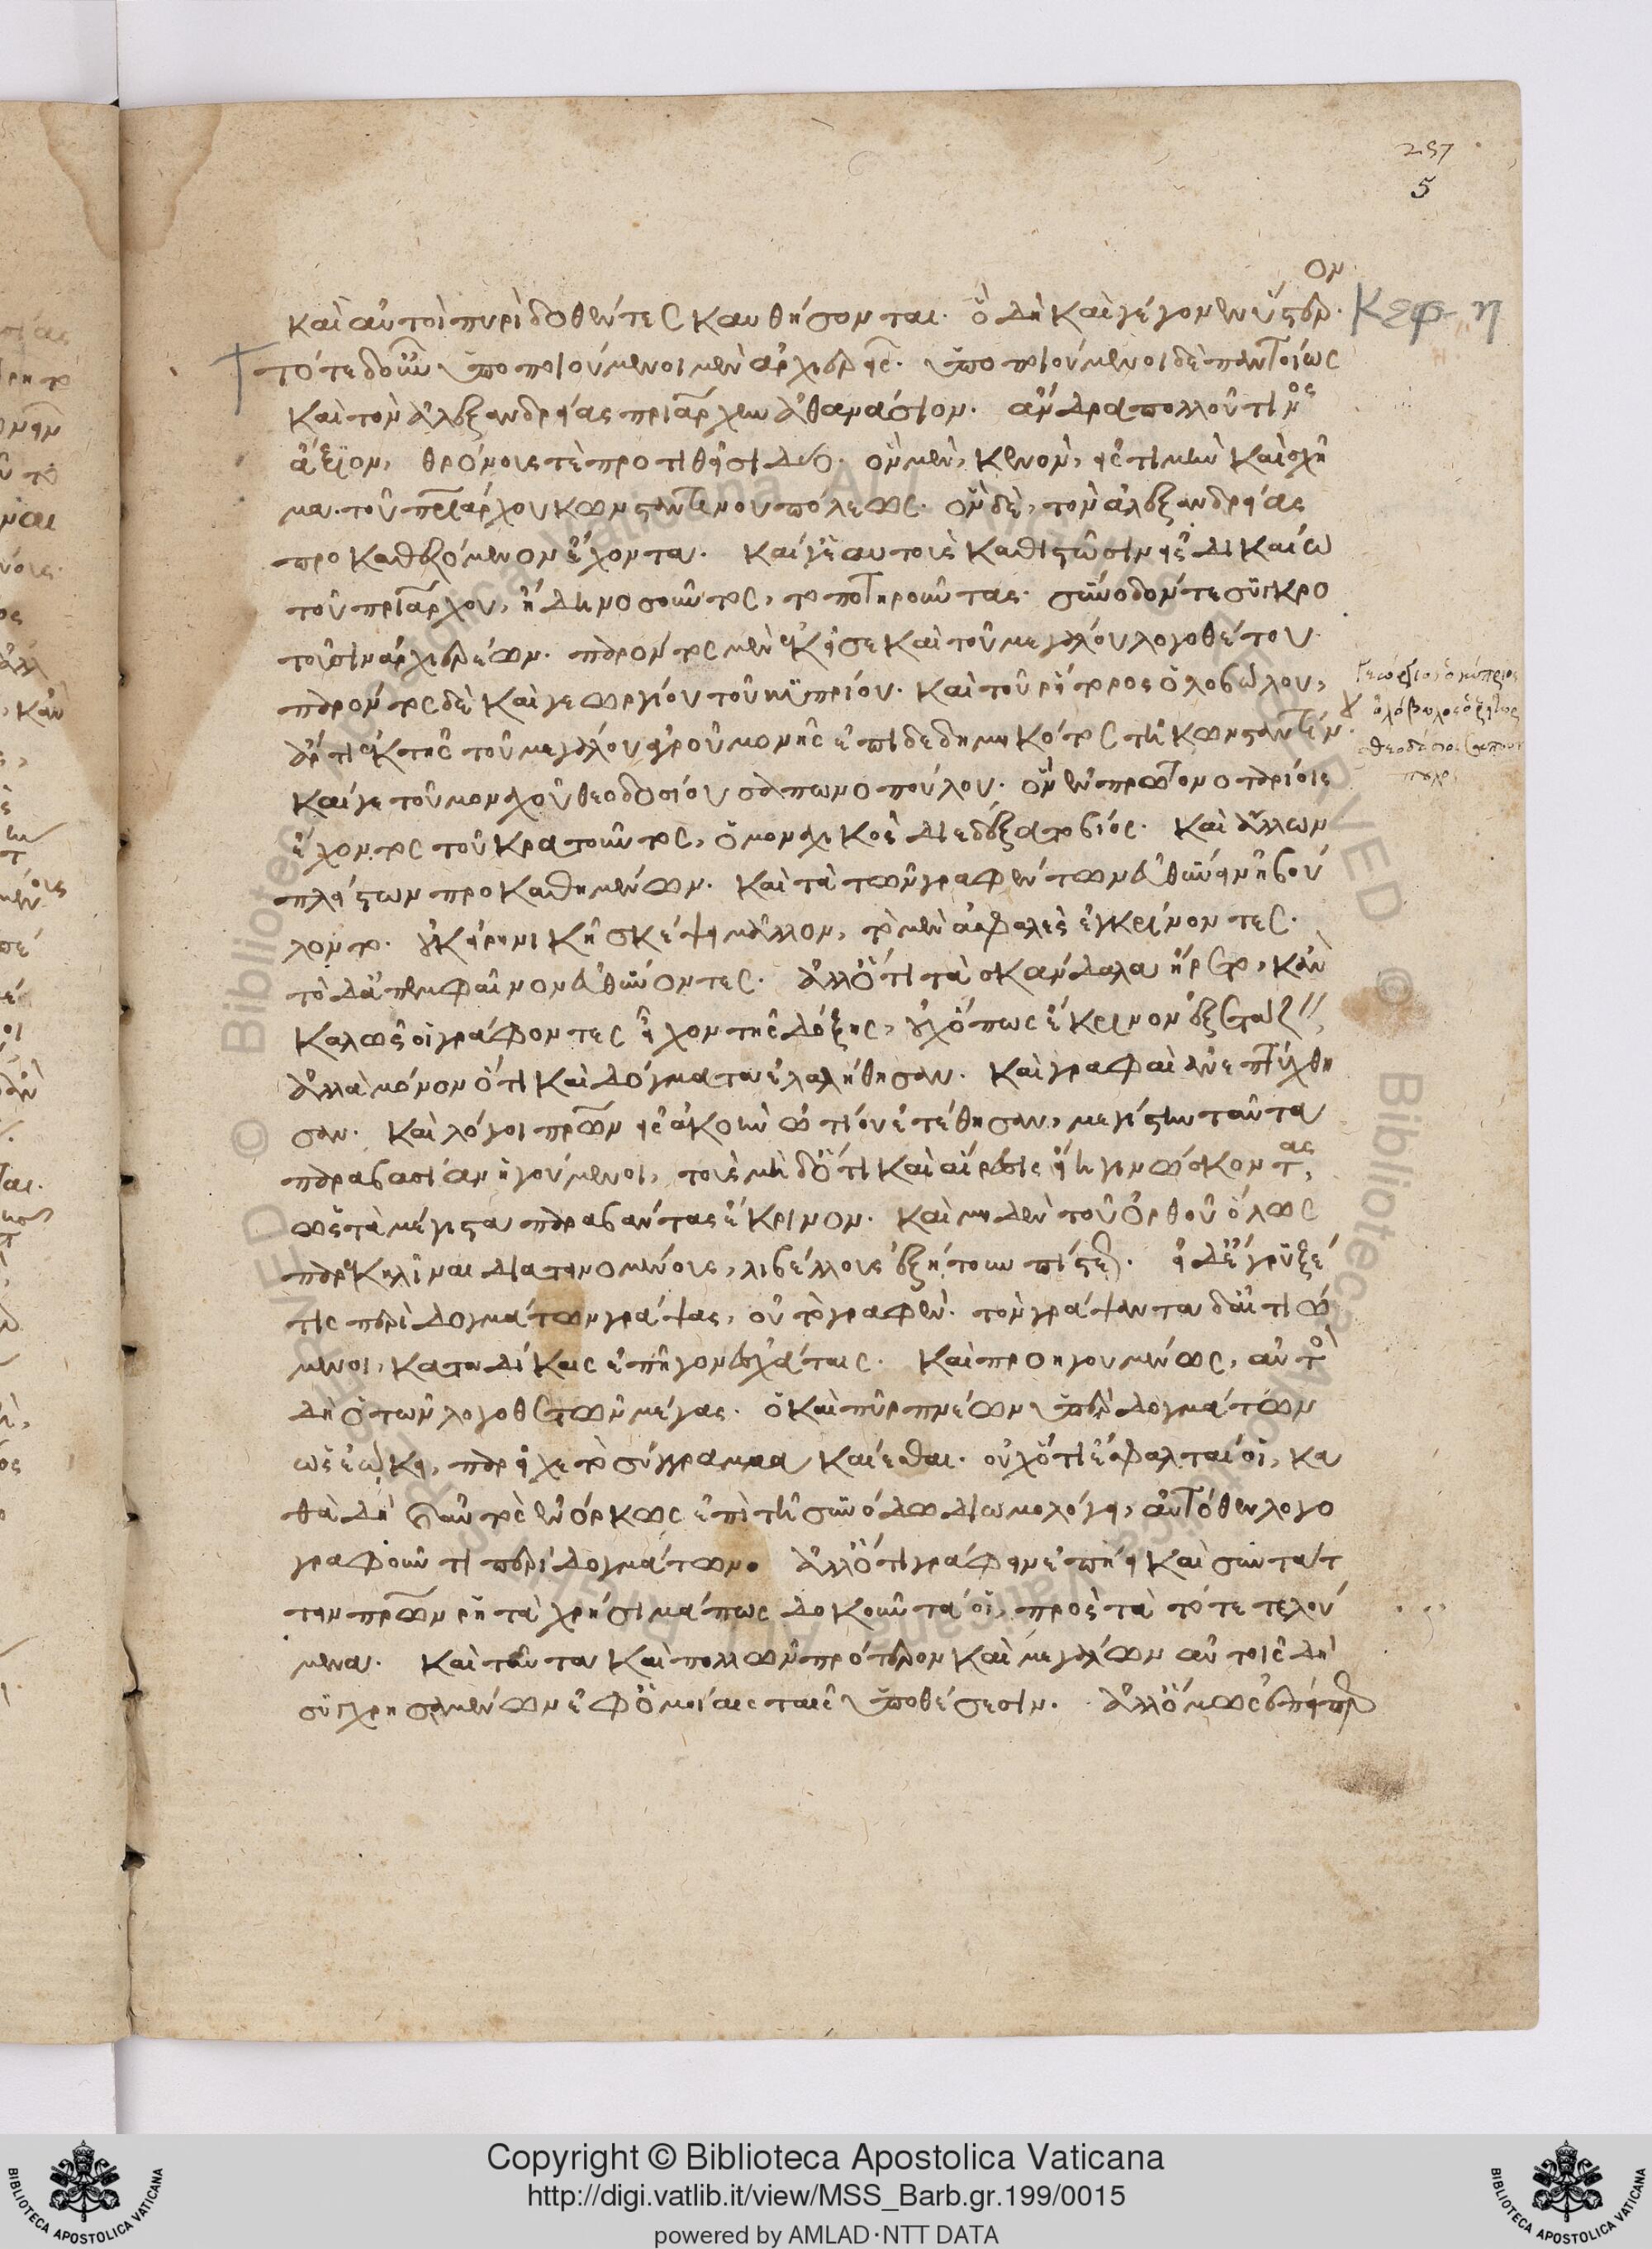 257
5
ον
καὶ αὐτοὶ πυρὶ δοθέντες καυθήσονται. ὃ δὴ καὶ γέγονεν ὕστερ. Κεφ. η
τότε δ' οὖν ὑποποιούμενοι μὲν ἀρχιερεῖς. ὑποποιούμενοι δὲ παντοίως
καὶ τὸν ἀλεξανδρείας πριάρχην ἀθανάσιον. ἄνδρα πολλοῦ τινος
ἄξιον, θρόνοις τὲ προτιθεῖσι δυσί. ὃν μὲν, κενὸν, εἰς τιμὴν καὶ σχῆ
μα τοῦ πριάρχου κωνσταντινουπόλεως. ὃν δὲ, τὸν ἀλεξανδρείας
προκαθεζόμενον ἔχοντα. καί γε αυτοὺς καθιστῶσιν εἰς δικαίω
τοῦ πριάρχου, ἢ δημοσοῦντος, το ποτηροῦντας. σύνοδόν τε συγκρο
τοῦσιν ἀρχιερέων. παρόντος μὲν ἐκεῖσε καὶ τοῦ μεγάλου λογοθέτου
παρόντος δὲ καὶ γεωργίου τοῦ κυπρίου. καὶ τοῦ ῥήτορος ὁλοβώλου,
ἄρτι ἐκ τῆς τοῦ μεγάλου ἀγροῦ μονῆς ἐπιδεδημηκότος τῇ κωνσταντίν.
καί γε τοῦ μοναχοῦ θεοδοσίου σαπωνοπούλου. ὃν ἐν πρώτοις οἰκείοις
ἔχοντος τοῦ κρατοῦντος, ὁ μοναχικὸς διεδέξατο βίος. καὶ ἄλλων
πλείστων προκαθημένων. καὶ τὰ τῶν γραφέντων εὐθύνειν ἠβού
λοντο. οὐκ εἰρηνικῇ σκέψει μᾶλλον, τὸ μὲν ἀσφαλὲς ἐγκρίνοντες.
τὸ δ' ἀπεμφαῖνον εὐθύνοντες. ἀλλ' ὅτι τὰ σκάνδαλα ἤρετο, κἂν
καλῶς οἱ γράφοντες εἶχον τῆς δόξης, οὐχ ὅπως ἔκρινον ἐξετάζειν,
ἀλλὰ μόνον ὅτι καὶ δόγματα ἐλαλήθησαν. καὶ γραφαὶ ἀνεπτύχθη
σαν. καὶ λόγοι πρῶν εἰς ἀκοὴν ὠτίου ἐτέθησαν, μεγίστην ταῦτα
παραβασίαν ἡγούμενοι, τοὺς μὴ δ' ὅτι καὶ αἵρεσις εἴη γινώσκοντας,
ὡς τὰ μέγιστα παραβάντας ἔκρινον. καὶ μηδὲν τοῦ ὀρθοῦ ὅλως
παρεκκλῖναι διατεινομένους, λιβέλλους ἐξῄτουν πίστεως. εἰ δ' ἔγρυξέ
τις περὶ δογμάτων γράψας, οὐ τὸ γραφὲν. τὸν γράψαντα δ' αἰτιώ
μενοι, καταδίκαις ἐπῆγον ἐσχάταις. καὶ προηγουμένως, αὐτὸς
δὴ ὁ τῶν λογοθετῶν μέγας. ὁ καὶ πῦρ πνέων ὑπὲρ δογμάτων
ὡς ἐῴκει, παρεῖχε τὸ σύγγραμμα καίεσθαι. οὐχ ὅτι ἔσφαλταί οἱ, κα
θὰ δὴ ταῦτα ἐνόρκως ἐπὶ τῇ συνόδω διωμολόγει, αὐτόθεν λογο
γραφοῦντι περὶ δογμάτων. ἀλλ' ὅτι γράφειν ἐπῄει καὶ συντάτ
τειν πρῶν ῥητὰ χρήσιμά πως δοκοῦντά οἱ, πρὸς τὰ τότε τελού
μενα. καὶ ταῦτα καὶ πολλῶν πρότερον καὶ μεγάλων αὐτοῖς δὴ
συγχρησαμένων ἐφ' ὁμοίαις ταῖς ὑποθέσεσιν. ἀλλ' ὅμως
Γεώργιος ὁ κύπριος
ὁλόβωλος ὁ ῥήτωρ
θεοδόσιος
Copyright © Biblioteca Apostolica Vaticana
http://digi.vatlib.it/view/MSS_Barb.gr.199/0015
powered by AMLAD·NTT DATA
BIBLIOTECA APOSTOLICA VATICANA
BIBLIOTECA APOSTOLICA VATICANA